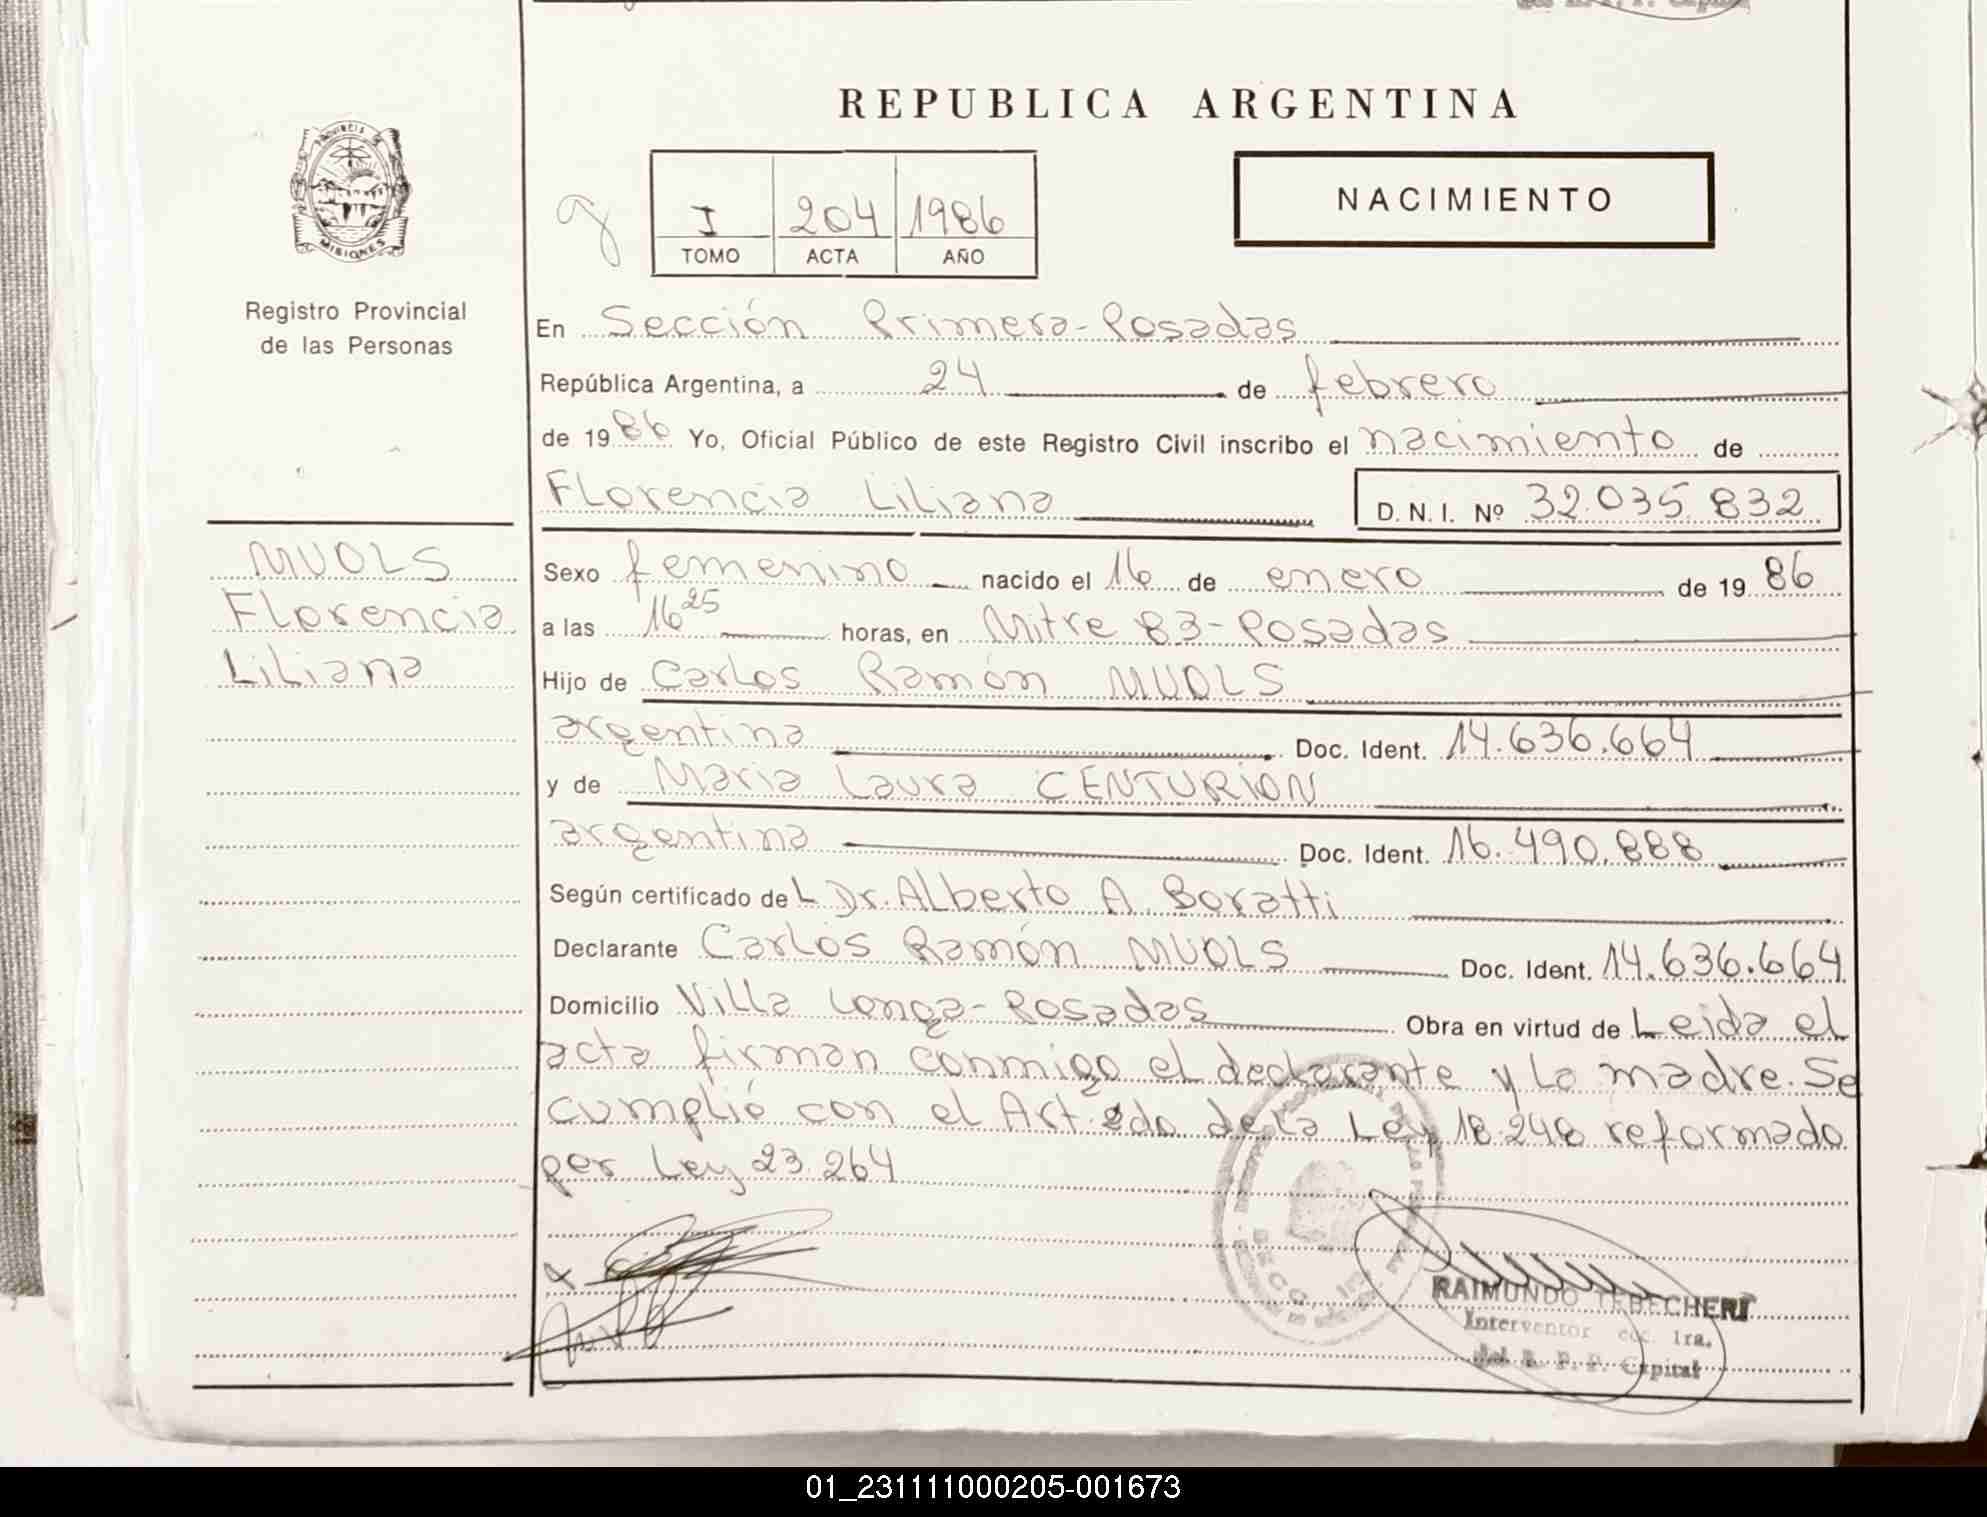 REPUBLICA ARGENTINA
PROVINCIA DE
MISIONES
Registro Provincial
de las Personas
I 204 1986
TOMO ACTA AÑO
NACIMIENTO
En Sección Primera-Posadas
República Argentina, a 24 de febrero
de 1986 Yo, Oficial Público de este Registro Civil inscribo el nacimiento de
Florencia Liliana D. N. I. Nº 32.035.832
MUOLS
Florencia
Liliana
Sexo femenino nacido el 16 de enero de 1986
a las 16 25 horas, en Mitre 83-Posadas
Hijo de Carlos Ramón MUOLS
argentina Doc. Ident. 14.636.664
y de Maria Laura CENTURION
argentina Doc. Ident. 16.490.888
Según certificado del Dr. Alberto A. Boratti
Declarante Carlos Ramón MUOLS Doc. Ident. 14.636.664
Domicilio Villa Longa-Posadas Obra en virtud de Leida el
acta firman conmigo el declarante y la madre. Se
cumplió con el Art. 2do de la Ley 18.248 reformado
por Ley 23.264
RAIMUNDO TEBECHERI
Interventor 1ra.
Capital
01_231111000205-001673